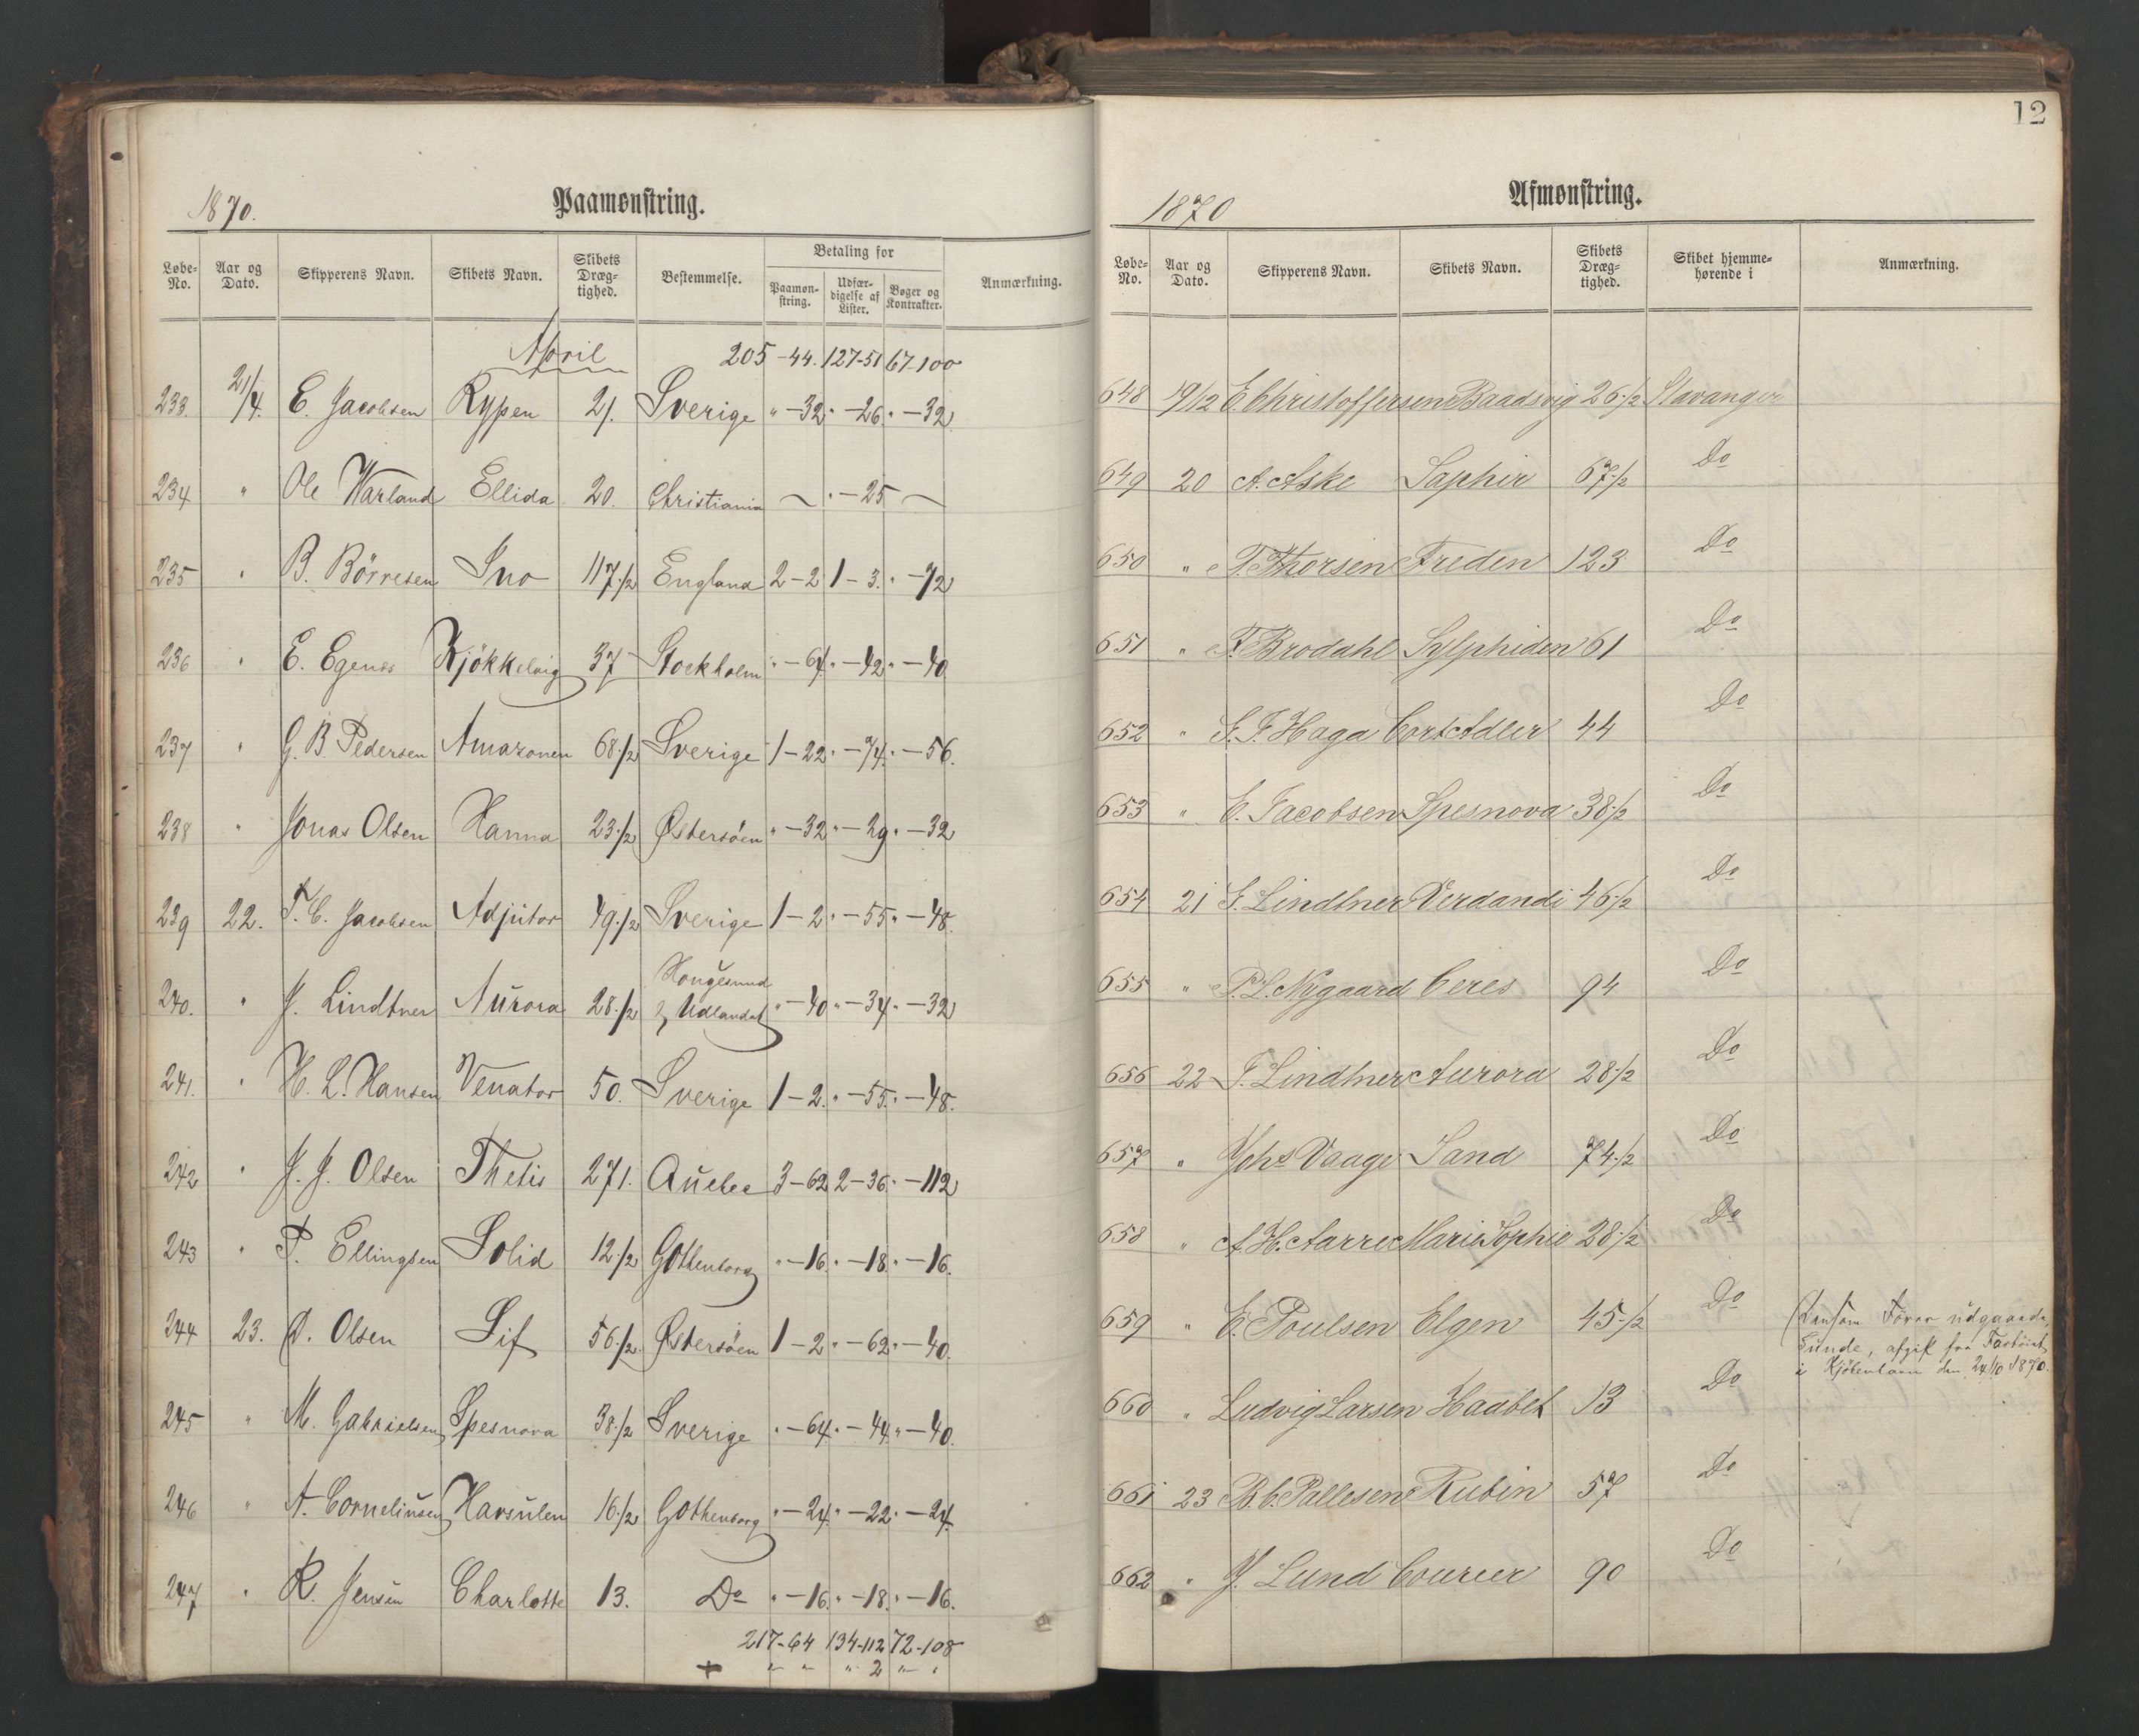 1870.
Paamønstring.
Løbe-No. Aar og Dato. Skipperens Navn. Skibets Navn. Skibets Dræg-tighed. Bestemmelse. Betaling for Paamøn-string. Udfær-digelse af Lister. Bøger og Kontrakter. Anmærkning.
April 205-44. 127-51 67-100
233. 21/4. E. Jacobsen Rypen 21. Sverige " -32 " -26. " -32
234 " Ole Warland Ellida 20. Christiania — " -25 —
235 " B. Börresen Ino 117 1/2 England 2-2 1-3. " -72
236 " E. Egenes Kjökkelvig 37 Stockholm " -64. " -42 " -40
237 " G. B. Pedersen Amazonen 68 1/2 Sverige 1-22 " -74. " -56.
238 " Jonas Olsen Hanna 23 1/2 Østersöen " -32 " -29 " -32
239 22. T. C. Jacobsen Adjutor 49 1/2 Sverige 1-2 " -55 " -48.
240. " J. Lindtner Aurora 28 1/2 Hougesund & Udlandet " -40 " -34. " -32
241. " H. L. Hansen Venator 50. Sverige 1-2. " -55. " -48.
242 " J. J. Olsen Thetis 271. Quebec 3-62 2-36. " -112
243 " P. Ellingsen Solid 12 1/2 Gothenborg " -16. " -18. " -16.
244 23. O. Olsen Sif 56 1/2 Østersöen 1-2 " -62 " -40.
245 " M. Gabrielsen Spesnova 38 1/2 Sverige " -64. " -44. " -40.
246 " A. Corneliusen Havsulen 16 1/2 Gothenborg " -24. " -22. " -24.
247 " R. Jensen Charlotte 13. Do " -16. " -18. " -16.
217-64 134-112 72-108
" " " 2 " "
12
1870
Afmønstring.
Løbe-No. Aar og Dato. Skipperens Navn. Skibets Navn. Skibets Dræg-tighed. Skibet hjemme-hørende i Anmærkning.
648 19/12 E. Christoffersen Baadsvig 26 1/2 Stavanger
649 20 A. Aske Saphir 67 1/2 Do
650 " T. Thorsen Freden 123 Do
651 " F. Brodahl Sylphiden 61 Do
652 " S. F. Haga Cort Adler 44 Do
653 " E. Jacobsen Spesnova 38 1/2 Do
654 21 S. Lindtner Verdandi 46 1/2 Do
655 " P. L. Nygaard Ceres 94 Do
656 22 J. Lindtner Aurora 28 1/2 Do
657 " Johs Vaage Sand 74 1/2 Do
658 " A. H. Aarre Marie Sophie 28 1/2 Do
659 " E. Poulsen Elgen 45 1/2 Do som Fører udgaaede, Sunde, afgik fra Fartöiet i Kjöbenhavn den 24/10 1870.
660 " Ludvig Larsen Haabet 13 Do
661 23 B. C. Pallesen Rubin 57 Do
662 " J. Lund Courier 90 Do